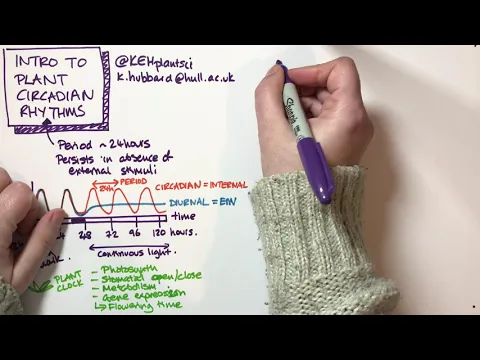 INTRO TO
PLANT
CIRCADIAN
RHYTHMS
@KEHplantsci
k.hubbard@hull.ac.uk
Period ~24hours
Persists in absence of
external stimuli
24h
PERIOD
CIRCADIAN = INTERNAL
DIURNAL = ENV
time
48 72 96 120 hours.
continuous light.
PLANT
CLOCK
- Photosynth
- Stomatal open/close
- Metabolism
- Gene expression
↳ Flowering time
Sharpie